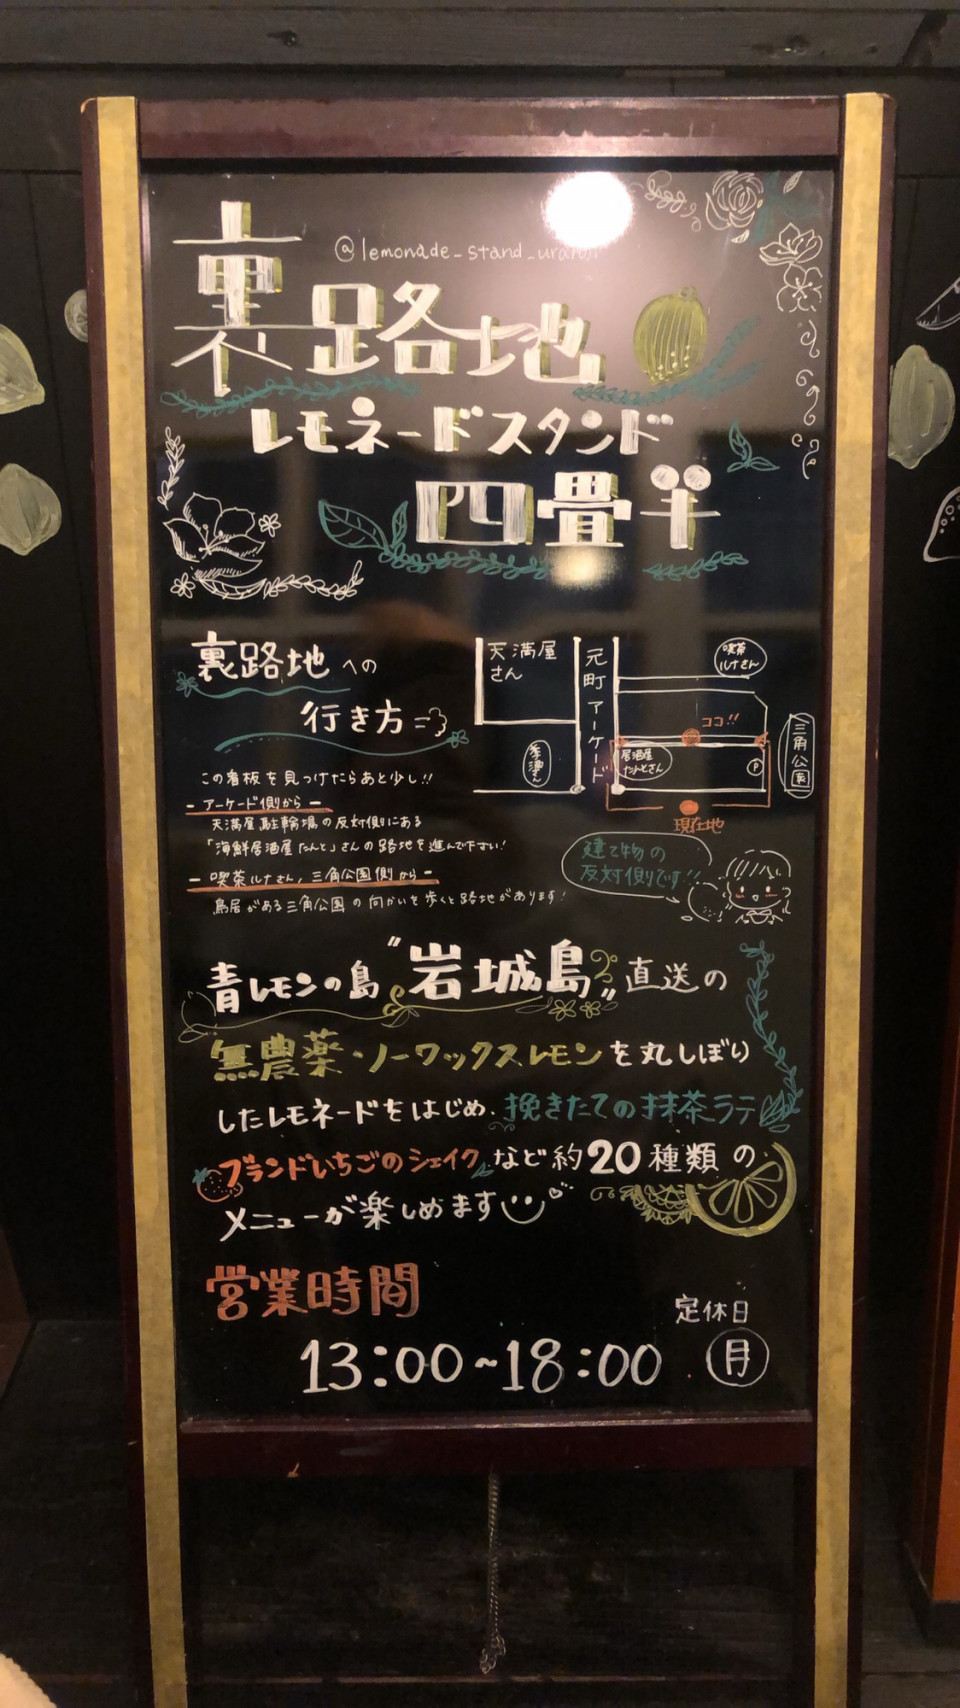 @lemonade_stand_uraroji
裏路地
レモネードスタンド
四畳半
裏路地への
行き方
この看板を見つけたらあと少し!!
ー アーケード側から ー
天満屋駐輪場の反対側にある
「海鮮居酒屋たんと」さんの路地を進んで下さい!
ー 喫茶ルナさん,三角公園側から ー
鳥居がある三角公園の向かいを歩くと路地があります!
天満屋
さん
元町アーケード
喫茶
ルナさん
ココ!!
居酒屋
たんとさん
P
三角公園
現在地
建て物の
反対側です!!
青レモンの島"岩城島"直送の
無農薬・ノーワックスレモンを丸しぼり
したレモネードをはじめ、挽きたての抹茶ラテ
ブランドいちごのシェイクなど約20種類の
メニューが楽しめます
営業時間
定休日
13:00~18:00 月